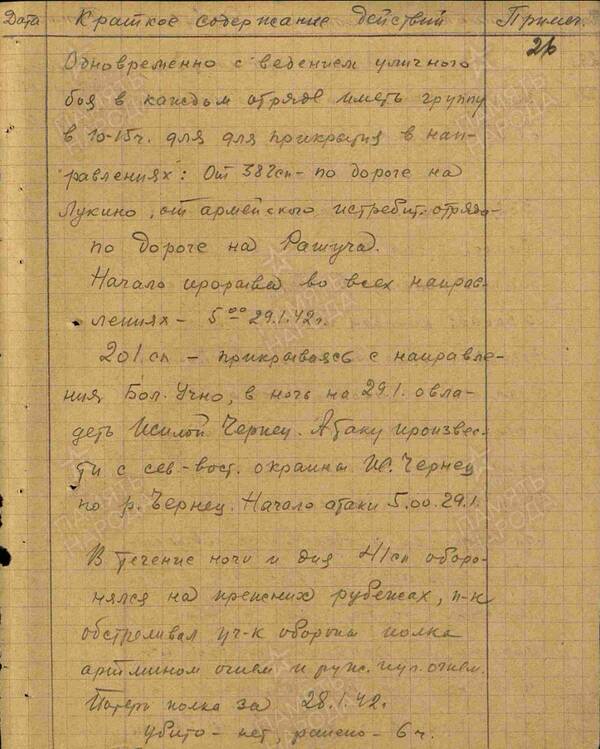 Дата Краткое содержание действий Примеч.
26
Одновременно с ведением уличного
боя в каждом отряде иметь группу
в 10-15ч. для для прикрытия в нап-
равлениях: От 382сп - по дороге на
Лукино, от армейского истребит. отряда -
по дороге на Рашуча.
Начало прорыва во всех направ-
лениях - 5 00 29.1.42г.
201 сп - прикрываясь с направле-
ния Бол. Учно, в ночь на 29.1. овла-
деть Жилой Чернец. Атаку произвес-
ти с сев-вост. окраины Ж. Чернец
по р. Чернец. Начало атаки 5.00 29.1.
В течение ночи и дня 41сп оборо-
нялся на прежних рубежах, п-к
обстреливал уч-к обороны полка
арт. мином огнем и руж. пул. огнем.
Потери полка за 28.1.42г.
убито - нет, ранено - 6 ч.
ПАМЯТЬ НАРОДА